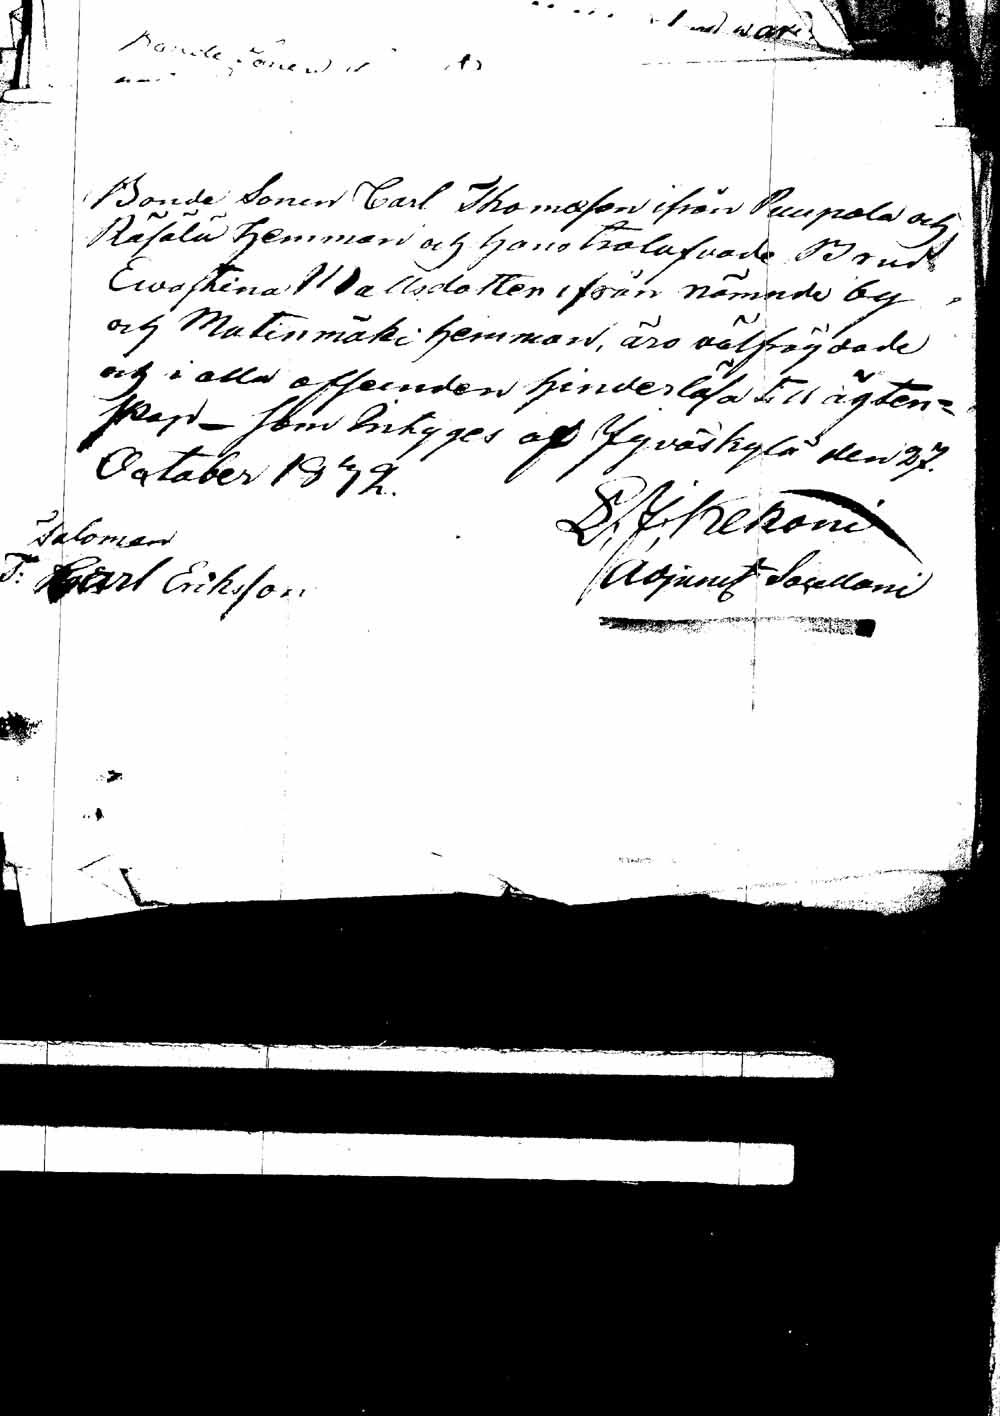 Bonde Sonen
Bonde Sonen Carl Thomasson ifrån Puupola och
Räsälä hemman och hans trolofvade Brud
Ewastina Mattsdotter ifrån nämnde by
och Matinmäki hemman, äro välfrägdade
och i alla afseenden hinderlösa till ägten=
skap – som Intygas af Jyväskylä den 27.
October 1872.
D. J. Kekoni
Adjunct Sacellani
Saloman
T: Carl Eriksson